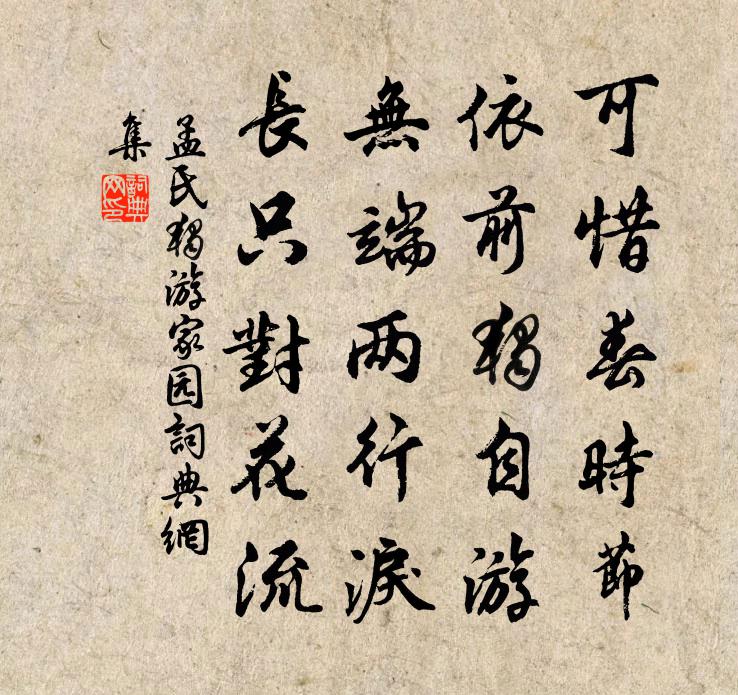 可惜春時節
依前獨自游
無端两行淚
長只對花流
孟氏獨游家园詞典網
集
詞典
网印